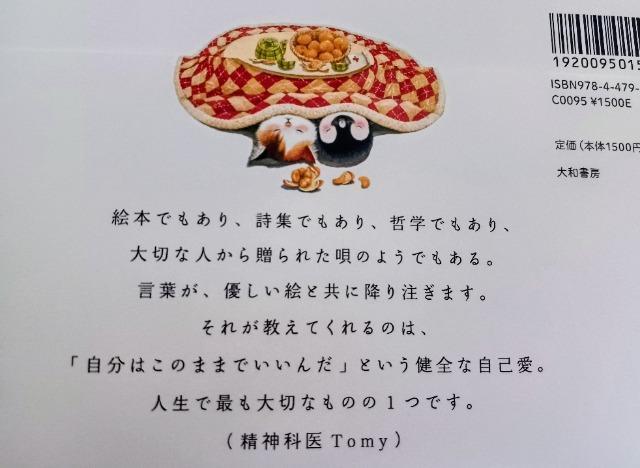 192009501
ISBN978-4-479-
C0095 ¥1500E
定価(本体1500円
大和書房
絵本でもあり、詩集でもあり、哲学でもあり、
大切な人から贈られた唄のようでもある。
言葉が、優しい絵と共に降り注ぎます。
それが教えてくれるのは、
「自分はこのままでいいんだ」という健全な自己愛。
人生で最も大切なものの1つです。
(精神科医Tomy)